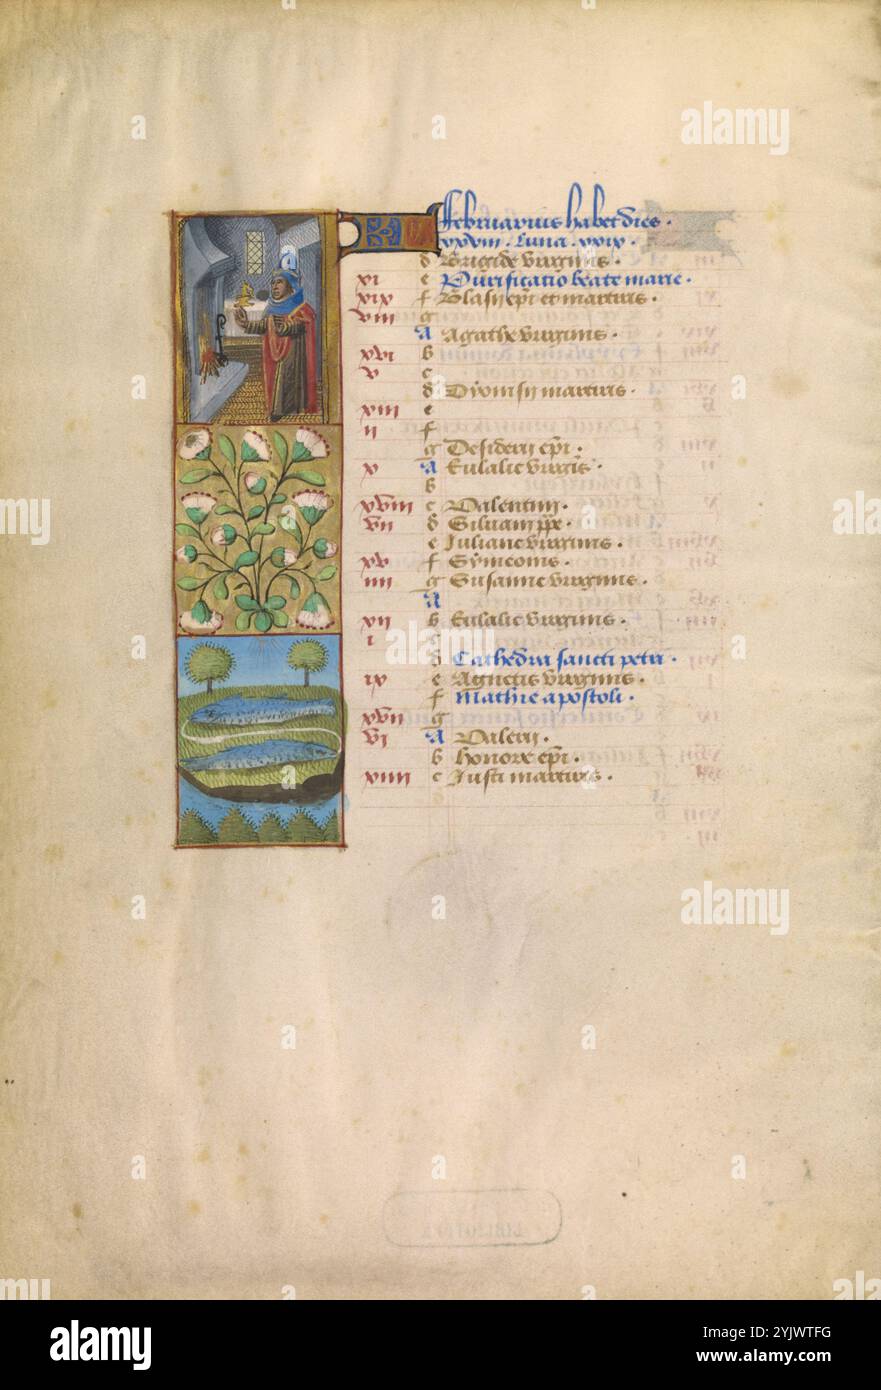 Februarius habet dies
xxviii. Luna. xxix.
d Brigide virginis.
xi e Purificatio beate marie.
xix f Blasii epi et martiris.
viii g
A Agathe virginis.
xvi b
v c
d Dyonisii martiris.
xiii e
ii f
g Desiderii epi.
x A Eulalie virgis.
b
xviii c Valentini.
vii d Siluani pe.
e Juliane virginis.
xv f Symeonis.
iiii g Susanne virginis.
A
xii b Eulalie virginis.
i c
d Cathedra sancti petri.
ix e Agnetis virginis.
f Mathie apostoli.
xvii g
vi A Valerii.
b Honore epi.
xiiii c Justi martiris.
alamy
Image ID: 2YJWTFG
www.alamy.com